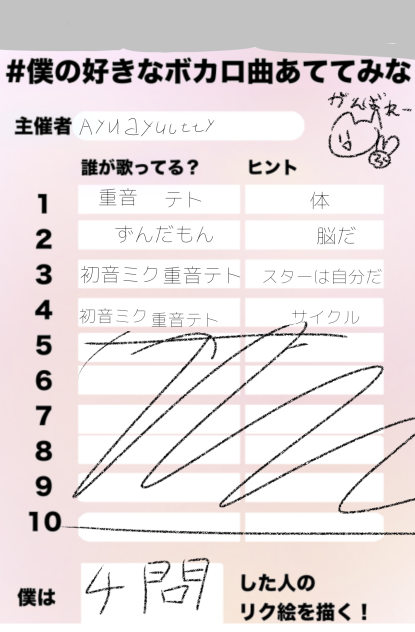 #僕の好きなボカロ曲あててみな
がんばれー
主催者 Ayuayuctty
誰が歌ってる? ヒント
1 重音 テト 体
2 ずんだもん 脳だ
3 初音ミク重音テト スターは自分だ
4 初音ミク重音テト サイクル
5
6
7
8
9
10
僕は 4問 した人の
リク絵を描く!